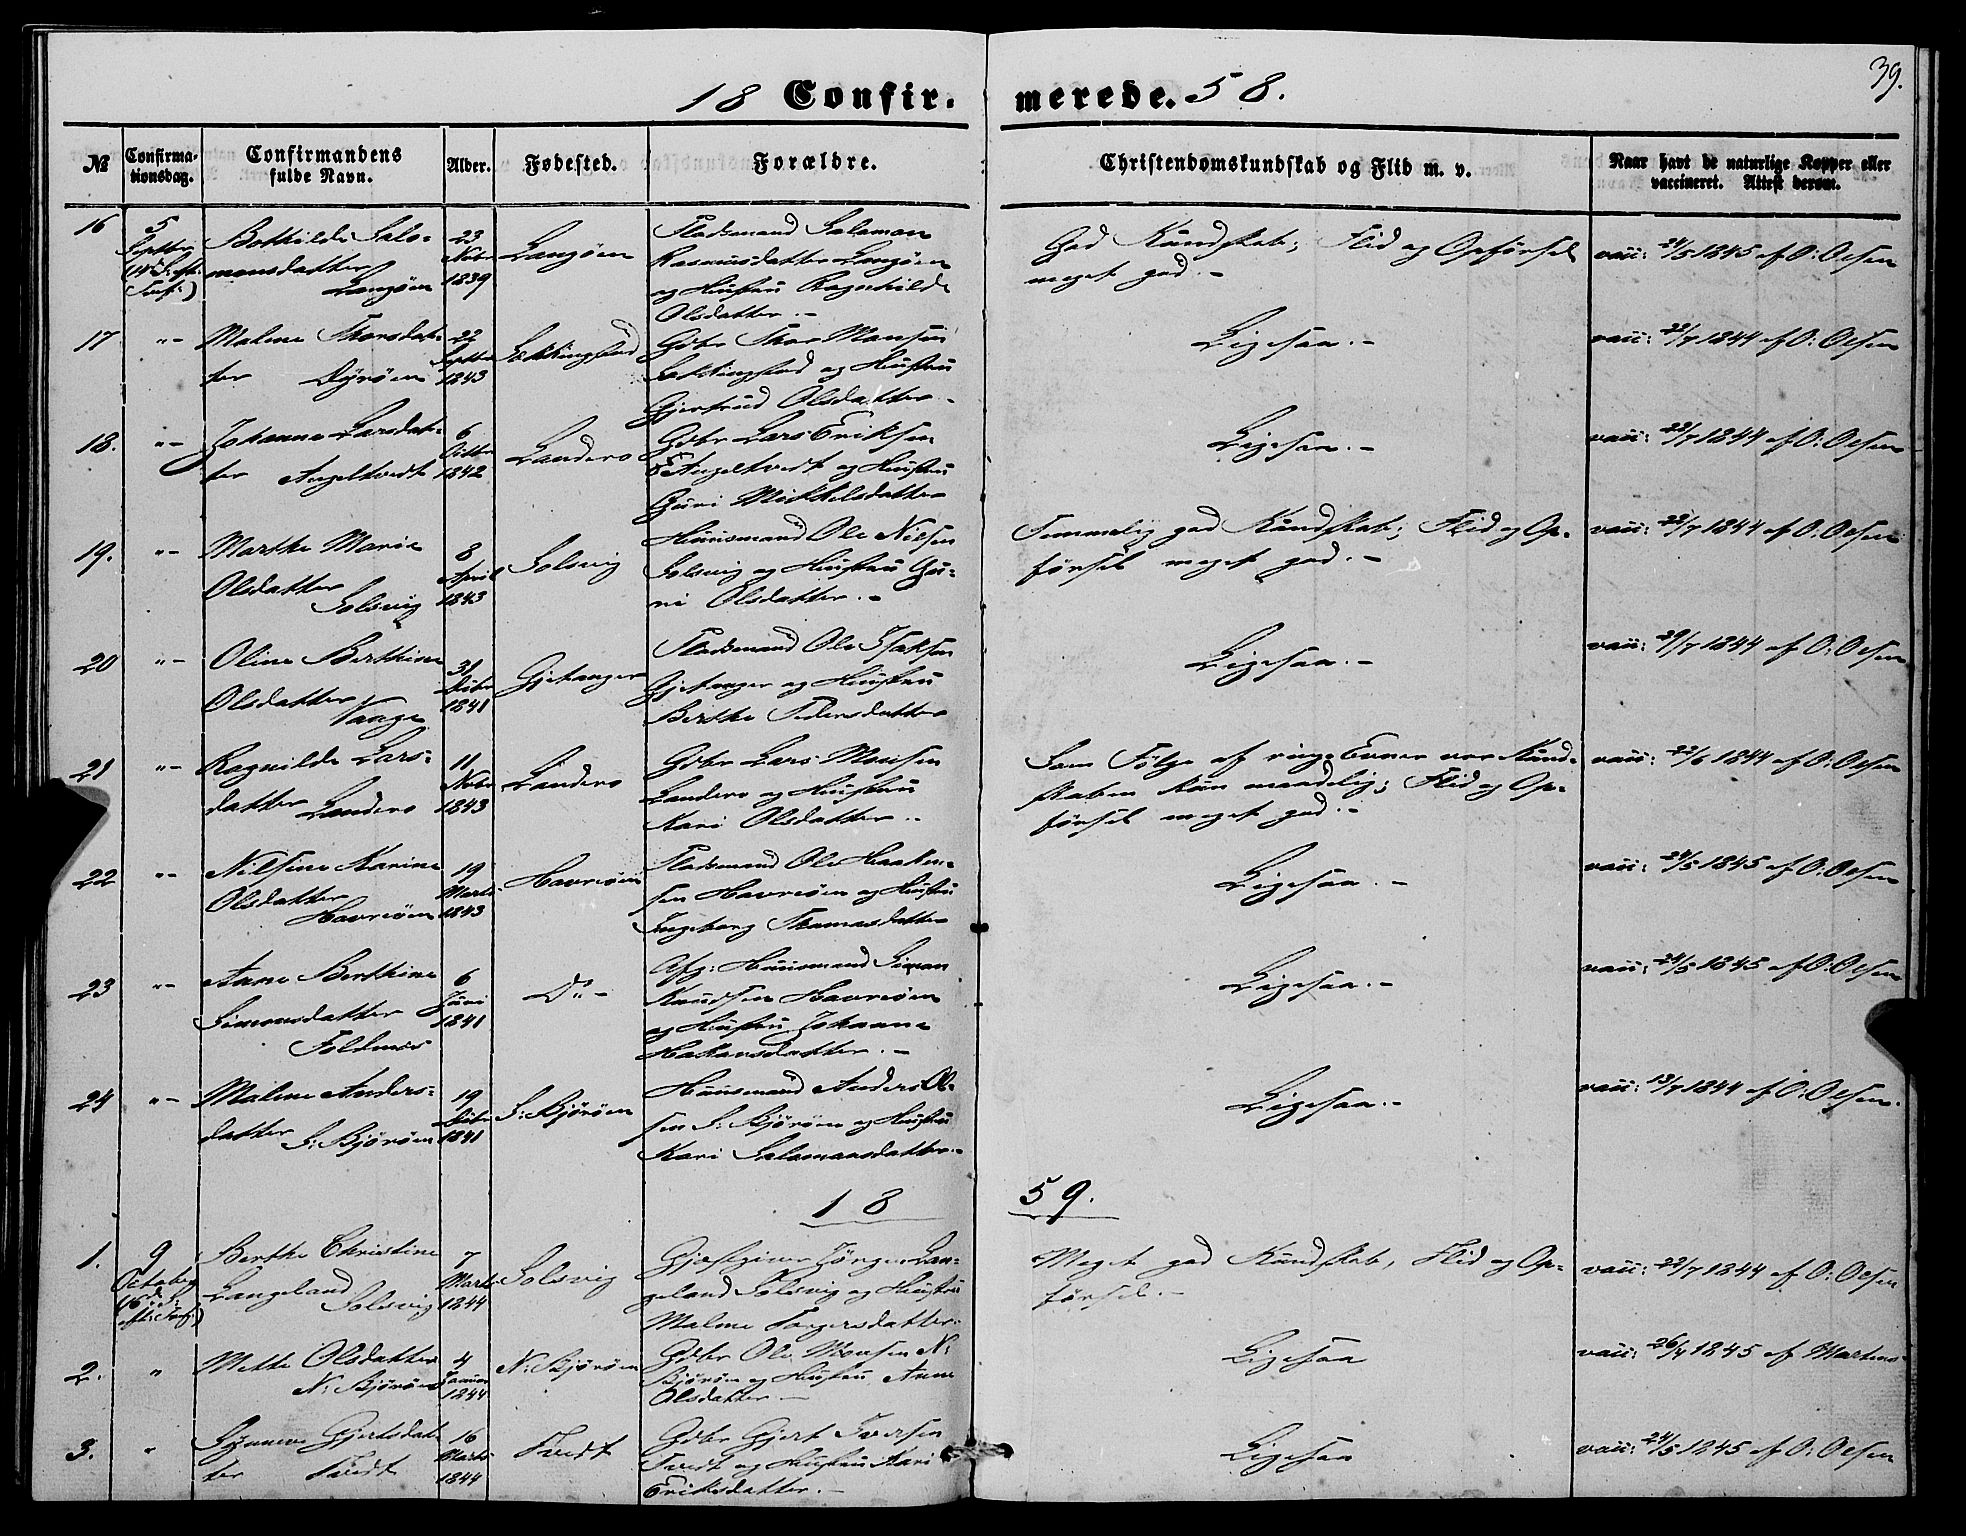 39.
18 Confir. merede. 58.
№ Confirma- tionsdag. Confirmandens fulde Navn. Alder. Fødested. Forældre. Christendomskundskab og Flid m. v. Naar havt de naturlige Kopper eller vaccineret. Attest derom.
16 5 Septbr (14 S. eft: Tref:)
Bothilde Salo-
monsdatter
Langøen
23 Novbr 1839
Langøen
Pladsmand Salamon
Rasmusdatter Langøen
og Hustru Ragnhilde
Olsdatter. -
God Kundskab; Flid og Opførsel
meget god. -
vacc: 24/5 1845 af O: Olsen
17 "-
Malene Thorsdat-
ter Dyrøen
22 Septbr 1843
Gdbr Thor Monsen
og Hustru
Gjertrud Olsdatter -
Ligesaa. -
vacc: 22/7 1844 af O: Olsen
18. "-
Johanne Larsdat-
ter Angeltvedt
6 Octbr 1842
Landero
Gdbr Lars Eriksen
Angeltvedt og Hustru
Guri Mikkelsdatter
Ligesaa. -
vacc: 23/7 1844 af O: Olsen
19. "-
Marthe Marie
Olsdatter
Solsvig
8 April 1843
Solsvig
Huusmand Ole Nilsen
Solsvig og Hustru Gu-
ri Olsdatter. -
Temmelig god Kundskab; Flid og Op-
førsel meget god. -
vacc: 22/7 1844 af O: Olsen
20 "-
Oline Berthine
Olsdatter
Vaage
31 Decbr 1841
Gjetanger
Pladsmand Ole Isaksen
Gjetanger og Hustru
Berthe Pedersdatter
Ligesaa. -
vacc: 29/7 1844 af O: Olsen
21 "-
Ragnilde Lars-
datter Landero
11 Novbr 1843
Landero
Gdbr Lars Monsen
Landero og Hustru
Kari Olsdatter. -
Som Følge af ringe Evner var Kund-
skaben kun maadelig; Flid og Op-
førsel meget god. -
vacc: 22/6 1844 af O: Olsen
22 "-
Nilsine Karine
Olsdatter
Havreøen
19 Marts 1843
Havreøen
Pladsmand Ole Haaken-
sen Havreøen og Hustru
Ingeborg Thomasdatter
Ligesaa. -
vacc: 24/5 1845 af O: Olsen
23 "-
Anne Berthine
Simonsdatter
Foldnes
6 Juni 1841
Do -
Afg: Huusmand Simon
Knudsen Havreøen
og Hustru Johanne
Hakonsdatter. -
Ligesaa. -
vacc: 24/5 1845 af O: Olsen
24 "-
Malene Anders-
datter S: Bjørøen
19 Decbr 1841
S: Bjørøen
Huusmand Anders Ol-
sen S: Bjørøen og Hustru
Kari Salamonsdatter. -
Ligesaa. -
vacc: 13/7 1844 af O: Olsen.
18 59.
1. 9 October (16 S: eft: Tref:)
Berthe Christine
Langeland
Solsvig
7 Marts 1844
Solsvig
Gjæstgiver Jørgen Lan-
geland Solsvig og Hustru
Malene Torgersdatter.
Meget god Kundskab, Flid og Op-
førsel. -
vacc: 22/7 1844 af O: Olsen
2. "
Mette Olsdatter
N: Bjørøen
4 Januar 1844
N: Bjørøen
Gdbr Ole Monsen N:
Bjørøen og Hustru Anne
Olsdatter -
Ligesaa
vacc: 26/4 1845 af Martens
3. "
Synneve Gjertsdat-
ter Tvedt
16 Marts 1844
Tvedt
Gdbr Gjert Iversen
Tvedt og Hustru Kari
Eriksdatter. -
Ligesaa
vacc: 24/5 1845 af O: Olsen